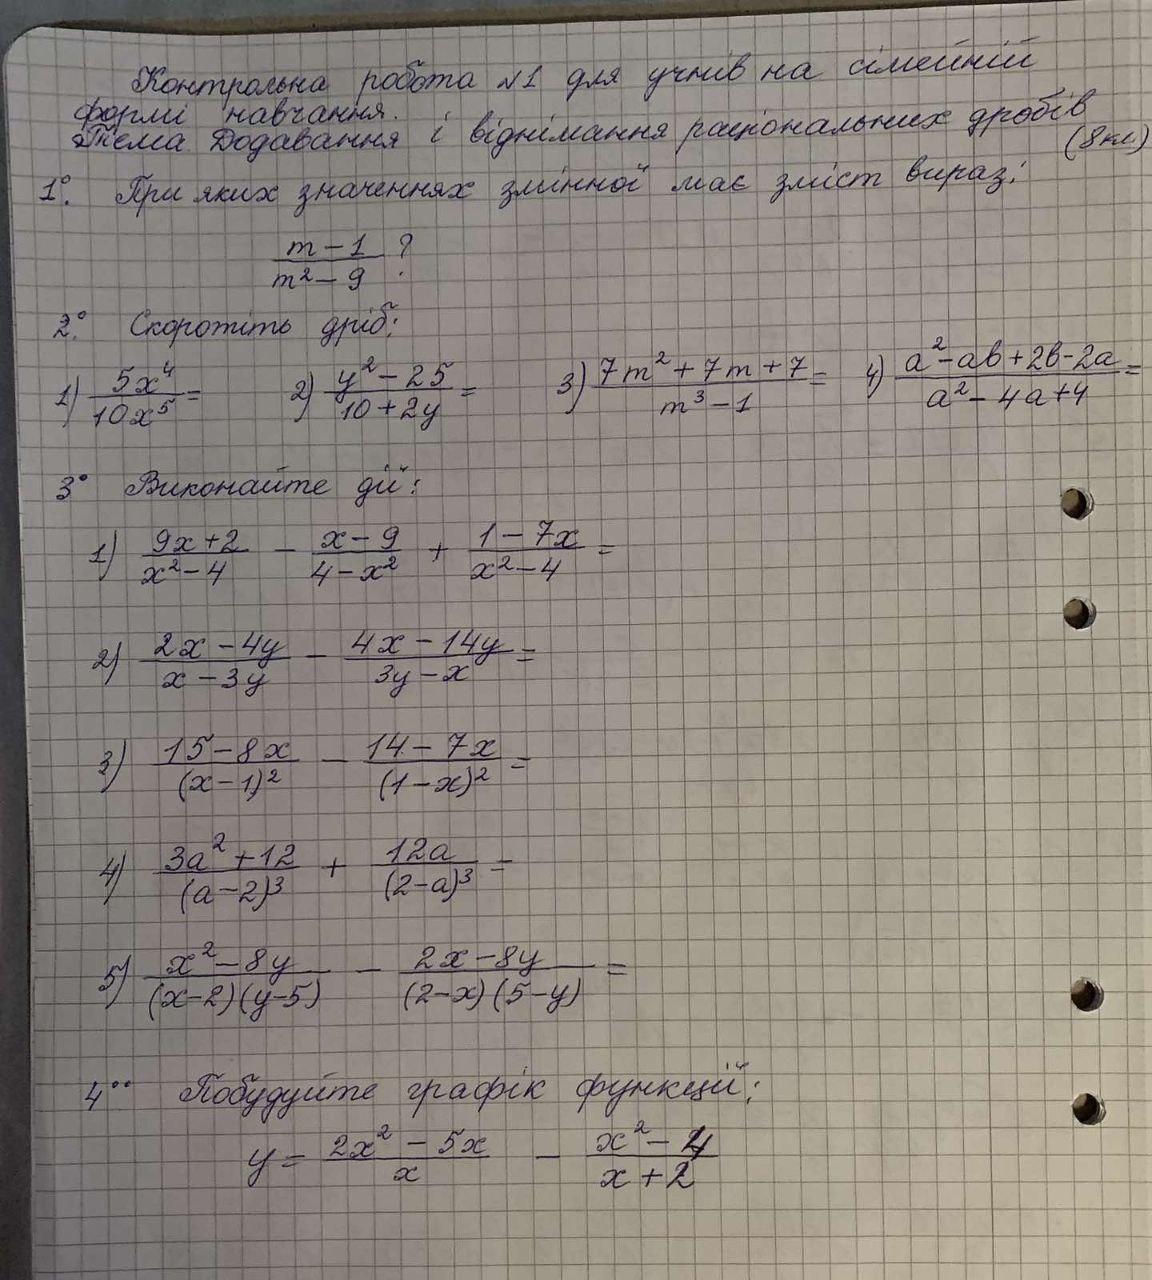 Контрольна робота №1 для учнів на сімейній
формі навчання.
Тема Додавання і віднімання раціональних дробів
(8 кл.)
1°. При яких значеннях змінної має зміст вираз:
(m - 1)/(m² - 9) ?
2°. Скоротіть дріб:
1) 5x⁴/10x⁵ = 2) (y² - 25)/(10 + 2y) = 3) (7m² + 7m + 7)/(m³ - 1) = 4) (a² - ab + 2b - 2a)/(a² - 4a + 4) =
3° Виконайте дії:
1) (9x + 2)/(x² - 4) - (x - 9)/(4 - x²) + (1 - 7x)/(x² - 4) =
2) (2x - 4y)/(x - 3y) - (4x - 14y)/(3y - x) =
3) (15 - 8x)/(x - 1)² - (14 - 7x)/(1 - x)² =
4) (3a² + 12)/(a - 2)³ + 12a/(2 - a)³ =
5) (x² - 8y)/((x - 2)(y - 5)) - (2x - 8y)/((2 - x)(5 - y)) =
4°° Побудуйте графік функції:
y = (2x² - 5x)/x - (x² - 4)/(x + 2)